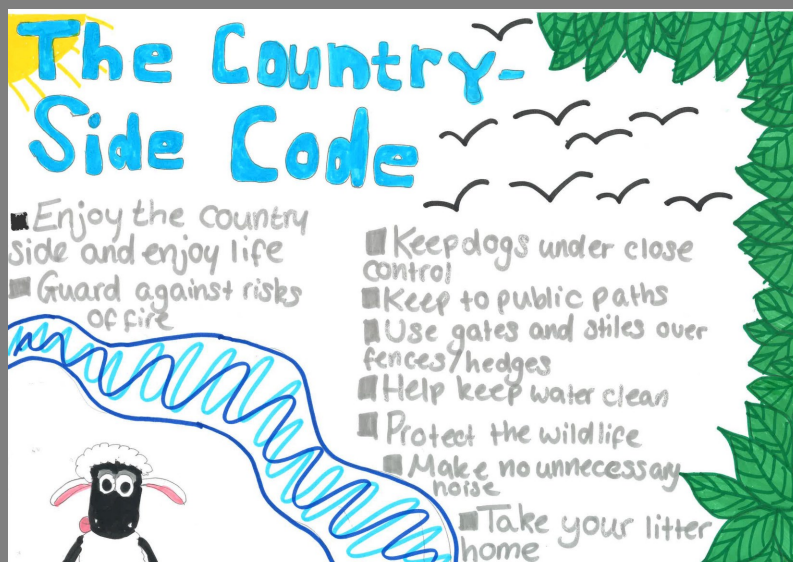 The Country-
Side Code
Enjoy the country
side and enjoy life
Guard against risks
of fire
Keep dogs under close
control
Keep to public paths
Use gates and stiles over
fences/hedges
Help keep water clean
Protect the wildlife
Make no unnecessary
noise
Take your litter
home